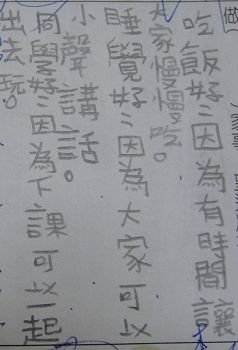 吃飯好好因為有時間讓
大家慢慢吃。
睡覺好好因為大家可以
小聲講話。
同學好好因為下課可以一起
出去玩。